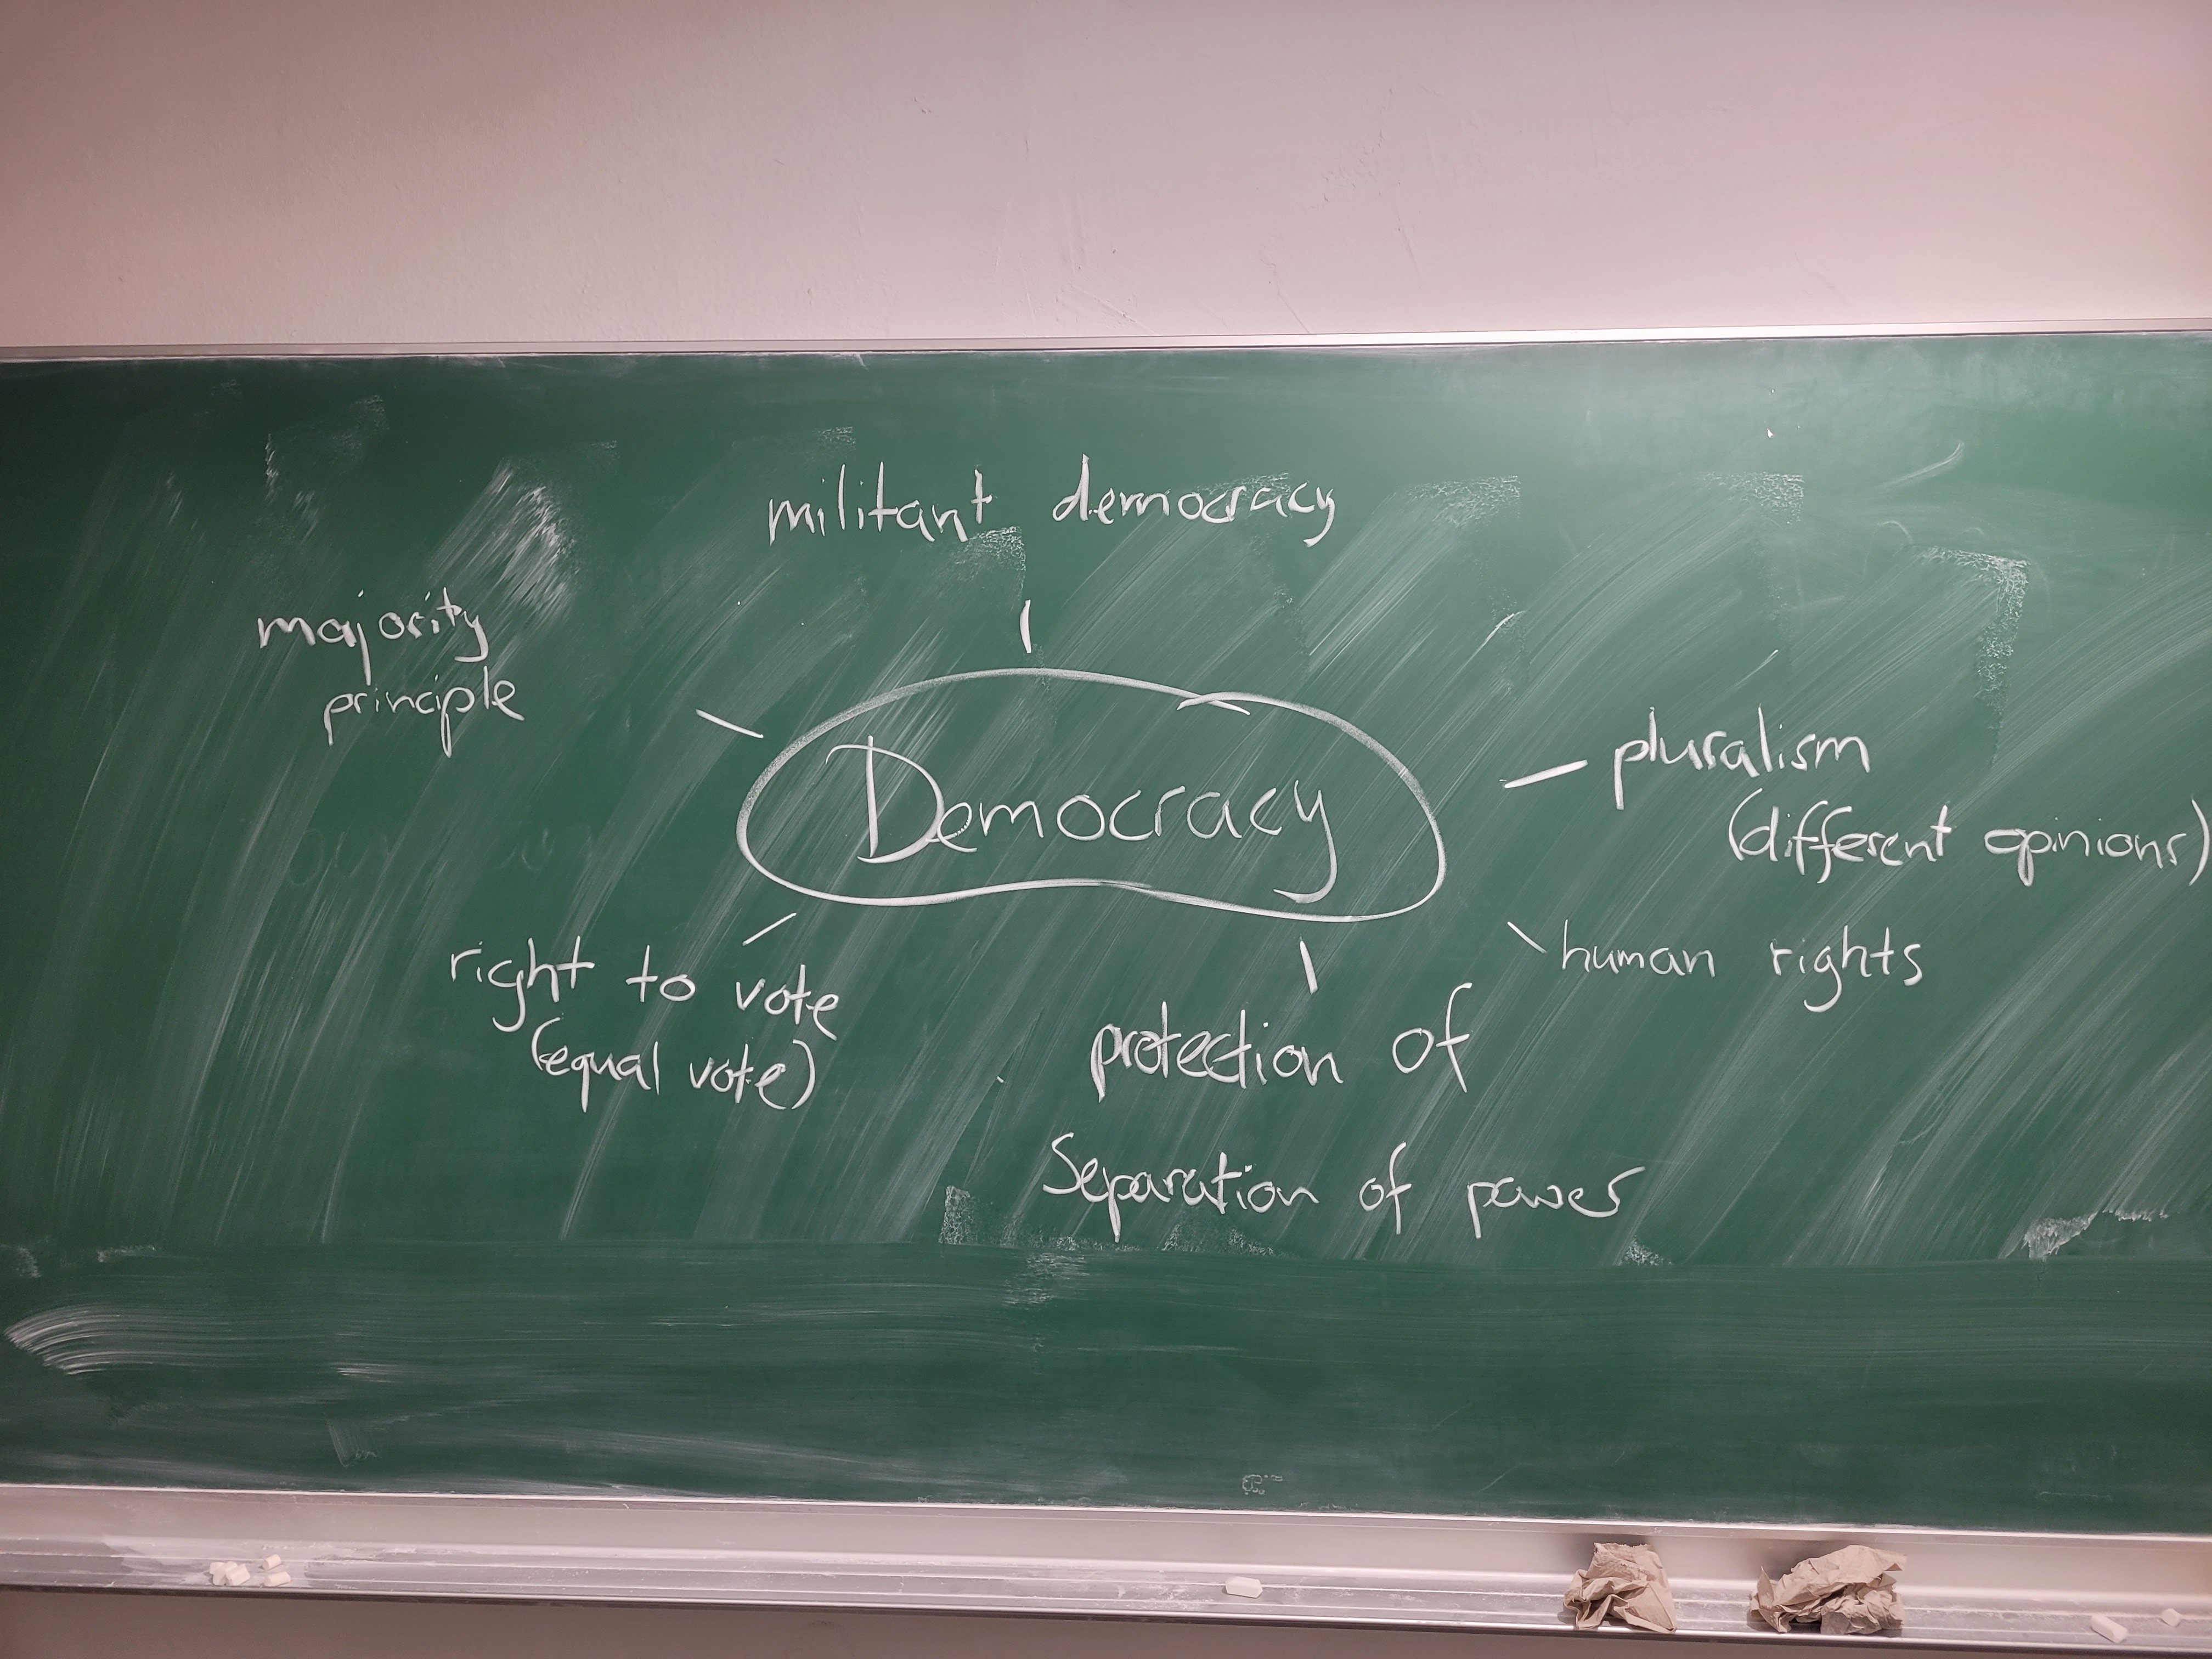 militant democracy
majority
principle
Democracy
pluralism
(different opinions)
human rights
right to vote
(equal vote)
protection of
Separation of power